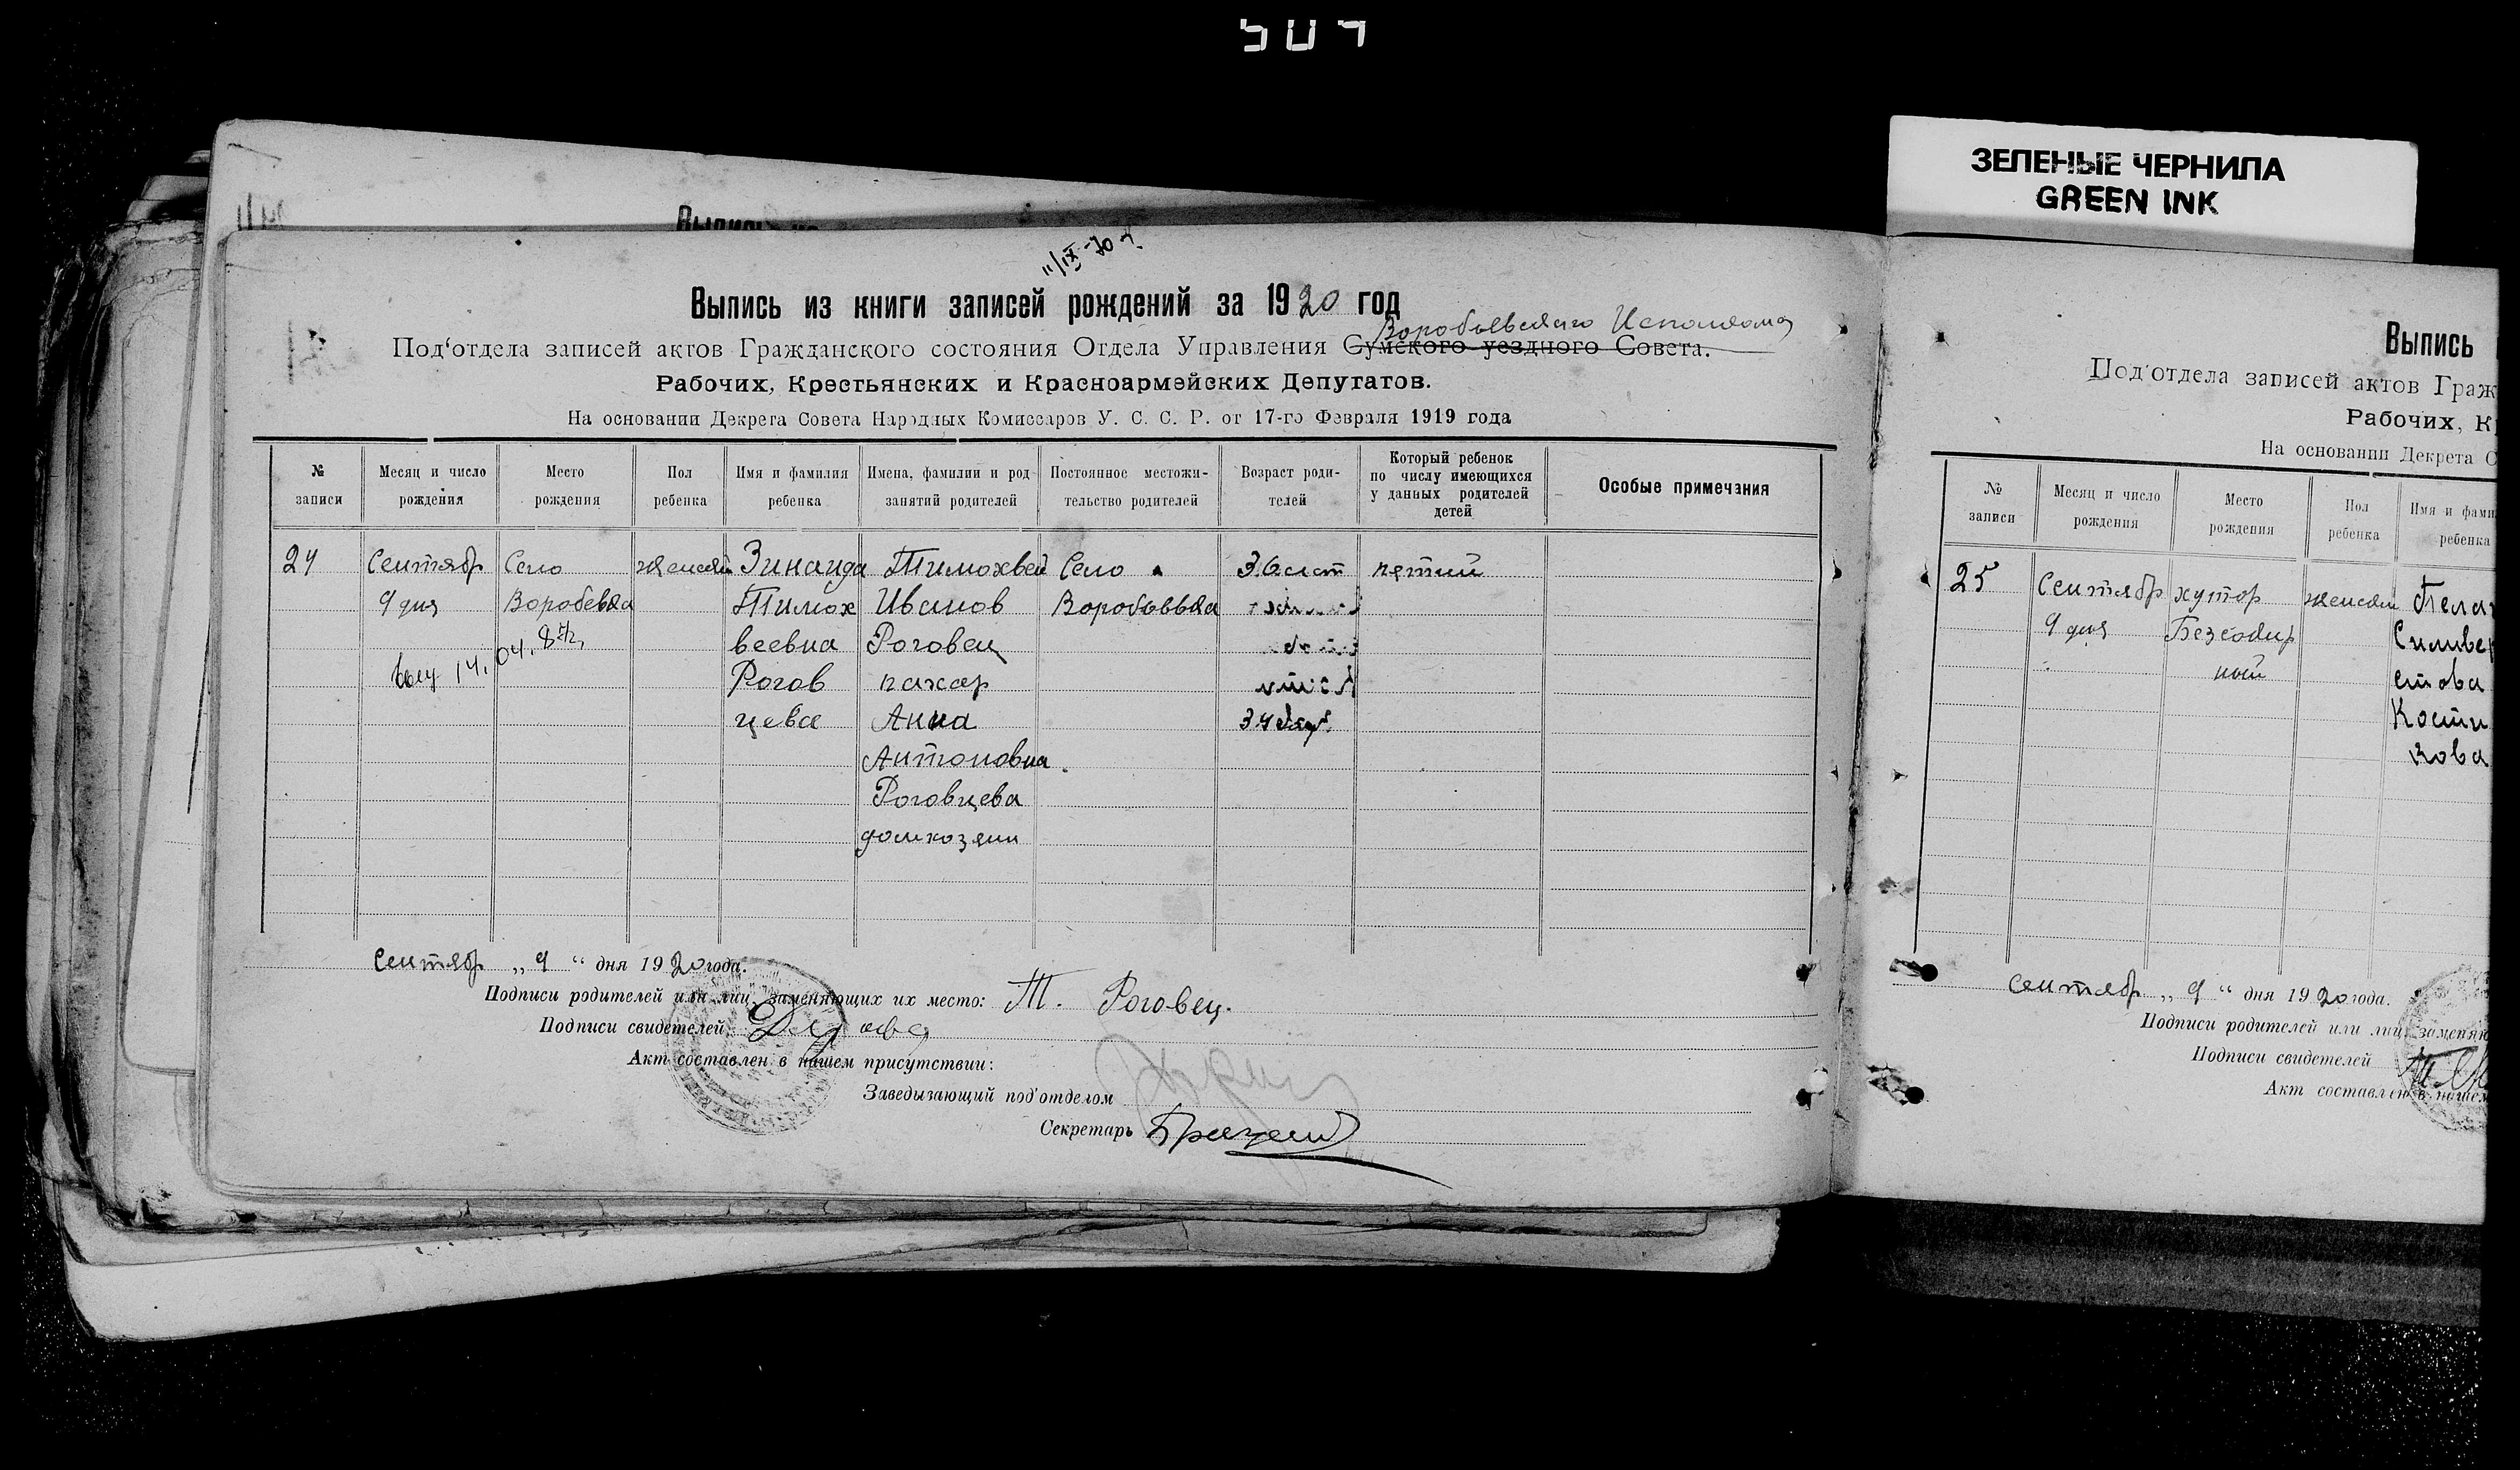 ЗЕЛЕНЫЕ ЧЕРНИЛА
GREEN INK
Выпись из книги записей рождений за 1920 год
Воробьевского Исполкома
Под'отдела записей актов Гражданского состояния Отдела Управления Сумского уездного Совета.
Рабочих, Крестьянских и Красноармейских Депутатов.
На основании Декрета Совета Народных Комиссаров У. С. С. Р. от 17-го Февраля 1919 года
№ записи
Месяц и число рождения
Место рождения
Пол ребенка
Имя и фамилия ребенка
Имена, фамилии и род занятий родителей
Постоянное местожительство родителей
Возраст родителей
Который ребенок по числу имеющихся у данных родителей детей
Особые примечания
24 Сентябр Село женский Зинаида Тимохвей Село 36 лет пятий
9 дня Воробевка Тимох Иванов Воробьвка
веевна Роговец
14.04.8
Рогов пахар
цева Анна 34
Антоновна
Роговцева
домхозяин
Сентябр „9“ дня 1920 года.
Подписи родителей или лиц, заменяющих их место: Т. Роговец.
Подписи свидетелей
Акт составлен в нашем присутствии:
Заведывающий под'отделом
Секретарь
Выпись
Под'отдела записей актов Граж
Рабочих, К
На основании Декрета С
№ записи
Месяц и число рождения
Место рождения
Пол ребенка
Имя и фами
ребенка
25 Сентябр хутор женски Пела
9 дня Безсодир Силве
ний стова
Кости
кова
Сентябр „9“ дня 1920 года.
Подписи родителей или лиц, заменяю
Подписи свидетелей
Акт составлен в нашем